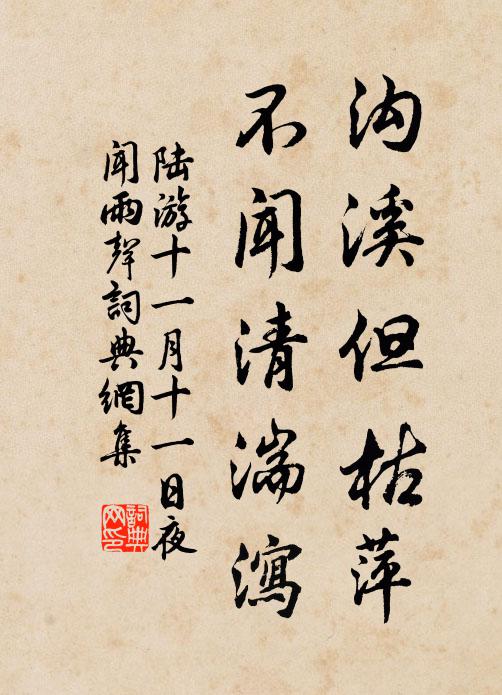 沟溪但枯萍
不闻清湍瀉
陆游十一月十一日夜
闻雨聲詞典網集
詞典网印